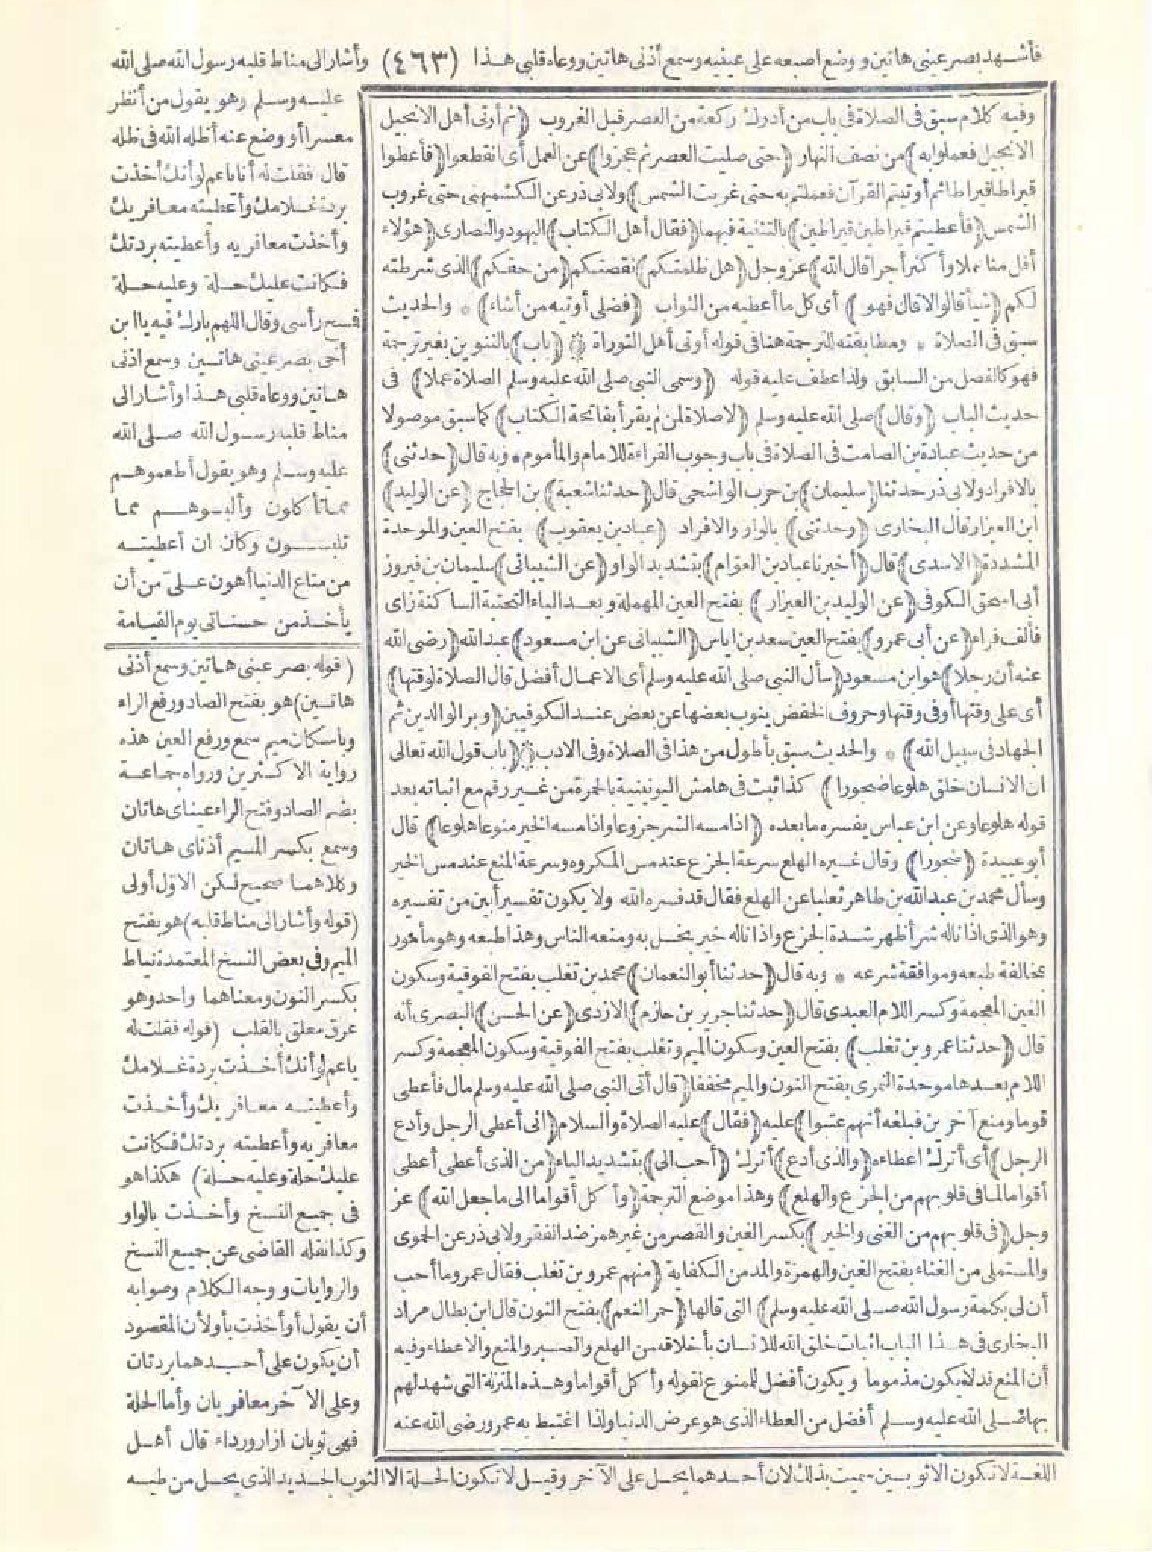 فأشهد بصر عيني هاتين ووضع اصبعه على عينيه وسمع أذني هاتين ووعاه قلبي هذا (٤٦٣) وأشار الى مناط قلبه رسول الله صلى الله
وفيه كلام سبق في الصلاة في باب من أدرك ركعة من العصر قبل الغروب (ثم أوتى أهل الانجيل
الانجيل فعملوا به) من نصف النهار (حتى صليت العصر ثم عجزوا) عن العمل أي انقطعوا (فأعطوا
قيراطا قيراطا ثم أوتيتم القرآن فعملتم به حتى غربت الشمس) ولابي ذر عن الكشميهني حتى غروب
الشمس (فأعطيتم قيراطين قيراطين) بالتثنية فيهما (فقال أهل الكتاب) اليهود والنصارى (هؤلاء
أقل منا عملا وأكثر أجرا قال الله) عز وجل (هل ظلمتكم) نقصتكم (من حقكم) الذي شرطته
لكم (شيأ قالوا لا قال فهو) أي كل ما أعطيه من الثواب (فضلى أوتيه من أشاء) * والحديث
سبق في الصلاة * ومطابقته للترجمة هنا في قوله أوتى أهل التوراة (باب) بالتنوين بغير ترجمة
فهو كالفصل من السابق ولذا عطف عليه قوله (وسمى النبي صلى الله عليه وسلم الصلاة عملا) في
حديث الباب (وقال) صلى الله عليه وسلم (لا صلاة لمن لم يقرأ بفاتحة الكتاب) كما سبق موصولا
من حديث عبادة بن الصامت في الصلاة في باب وجوب القراءة للامام والمأموم * وبه قال (حدثني)
بالافراد ولابي ذر حدثنا (سليمان) بن حرب الواشحي قال (حدثنا شعبة) بن الحجاج (عن الوليد)
ابن العيزار قال البخاري (وحدثني) بالواو والافراد (عباد بن يعقوب) بفتح العين والموحدة
المشددة (الاسدي) قال (أخبرنا عباد بن العوّام) بتشديد الواو (عن الشيباني) سليمان بن فيروز
أبي اسحق الكوفي (عن الوليد بن العيزار) بفتح العين المهملة وبعد الياء التحتية الساكنة زاي
فألف فراء (عن أبي عمرو) بفتح العين سعد بن اياس (الشيباني عن ابن مسعود) عبد الله (رضى الله
عنه أن رجلا) هو ابن مسعود (سأل النبي صلى الله عليه وسلم أي الاعمال أفضل قال الصلاة لوقتها)
أي على وقتها أو في وقتها وحروف الخفض ينوب بعضها عن بعض عند الكوفيين (وبر الوالدين ثم
الجهاد في سبيل الله) * والحديث سبق بأطول من هذا في الصلاة وفي الادب (باب قول الله تعالى
ان الانسان خلق هلوعا ضجورا) كذا ثبت في هامش اليونينية بالحمرة من غير رقم مع اثباته بعد
قوله هلوعا وعن ابن عباس يفسره ما بعده (اذا مسه الشر جزوعا واذا مسه الخير منوعا هلوعا) قال
أبو عبيدة (ضجورا) وقال غيره الهلع سرعة الجزع عند مس المكروه وسرعة المنع عند مس الخير
وسأل محمد بن عبد الله بن طاهر ثعلبا عن الهلع فقال قد فسره الله ولا يكون تفسير أبين من تفسيره
وهو الذي اذا ناله شر أظهر شدة الجزع واذا ناله خير بخل به ومنعه الناس وهذا طبعه وهو مأمور
بمخالفة طبعه وموافقة شرعه * وبه قال (حدثنا أبو النعمان) محمد بن تغلب بفتح الفوقية وسكون
الغين المعجمة وكسر اللام العبدي قال (حدثنا جرير بن حازم) الازدي (عن الحسن) البصري أنه
قال (حدثنا عمرو بن تغلب) بفتح العين وسكون الميم وتغلب بفتح الفوقية وسكون المعجمة وكسر
اللام بعدها موحدة النمري بفتح النون والميم مخففا (قال أتى النبي صلى الله عليه وسلم مال فأعطى
قوما ومنع آخرين فبلغه أنهم عتبوا) عليه (فقال) عليه الصلاة والسلام (اني أعطى الرجل وأدع
الرجل) أي أترك اعطاءه (والذي أدع) أترك (أحب الى) بتشديد الياء (من الذي أعطى أعطى
أقواما لما في قلوبهم من الجزع والهلع) وهذا موضع الترجمة (وأكل أقواما الى ما جعل الله) عز
وجل (في قلوبهم من الغنى والخير) بكسر الغين والقصر من غير همز ضد الفقر ولابي ذر عن الحموي
والمستملى من الغناء بفتح الغين والهمزة والمد من الكفاية (منهم عمرو بن تغلب فقال عمرو ما أحب
أن لي بكلمة رسول الله صلى الله عليه وسلم) التي قالها (حمر النعم) بفتح النون قال ابن بطال مراد
البخاري في هذا الباب اثبات خلق الله للانسان بأخلاقه من الهلع والصبر والمنع والاعطاء وفيه
أن المنع قد لا يكون مذموما ويكون أفضل للممنوع لقوله وأكل أقواما وهذه المنزلة التي شهد لهم
بها صلى الله عليه وسلم أفضل من العطاء الذي هو عرض الدنيا ولذا اغتبط به عمرو رضى الله عنه
عليه وسلم وهو يقول من أنظر
معسرا أو وضع عنه أظله الله في ظله
قال فقلت له أنا يا عم لو أنك أخذت
بردة غلامك وأعطيته معافريك
وأخذت معافريه وأعطيته بردتك
فكانت عليك حلة وعليه حلة
فمسح رأسي وقال اللهم بارك فيه يا ابن
أخي بصر عيني هاتين وسمع أذني
هاتين ووعاه قلبي هذا وأشار الى
مناط قلبه رسول الله صلى الله
عليه وسلم وهو يقول أطعموهم
مما تأكلون وألبسوهم مما
تلبسون وكان ان أعطيته
من متاع الدنيا أهون علىّ من أن
يأخذ من حسناتي يوم القيامة
(قوله بصر عيني هاتين وسمع أذني
هاتين) هو بفتح الصاد ورفع الراء
وباسكان ميم سمع ورفع العين هذه
رواية الاكثرين ورواه جماعة
بضم الصاد وفتح الراء عيناي هاتان
وسمع بكسر الميم أذناي هاتان
وكلاهما صحيح لكن الاول أولى
(قوله وأشار الى مناط قلبه) هو بفتح
الميم وفي بعض النسخ المعتمدة نياط
بكسر النون ومعناهما واحد وهو
عرق معلق بالقلب (قوله فقلت له
يا عم لو أنك أخذت بردة غلامك
وأعطيته معافريك وأخذت
معافريه وأعطيته بردتك فكانت
عليك حلة وعليه حلة) هكذا هو
في جميع النسخ وأخذت بالواو
وكذا نقله القاضي عن جميع النسخ
والروايات ووجه الكلام وصوابه
أن يقول أو أخذت بأو لأن المقصود
أن يكون على أحدهما بردتان
وعلى الآخر معافريان وأما الحلة
فهي ثوبان ازار ورداء قال أهل
اللغة لا تكون الا ثوبين سميت بذلك لان أحدهما يحل على الآخر وقيل لا تكون الحلة الا الثوب الجديد الذي يحل من طيه